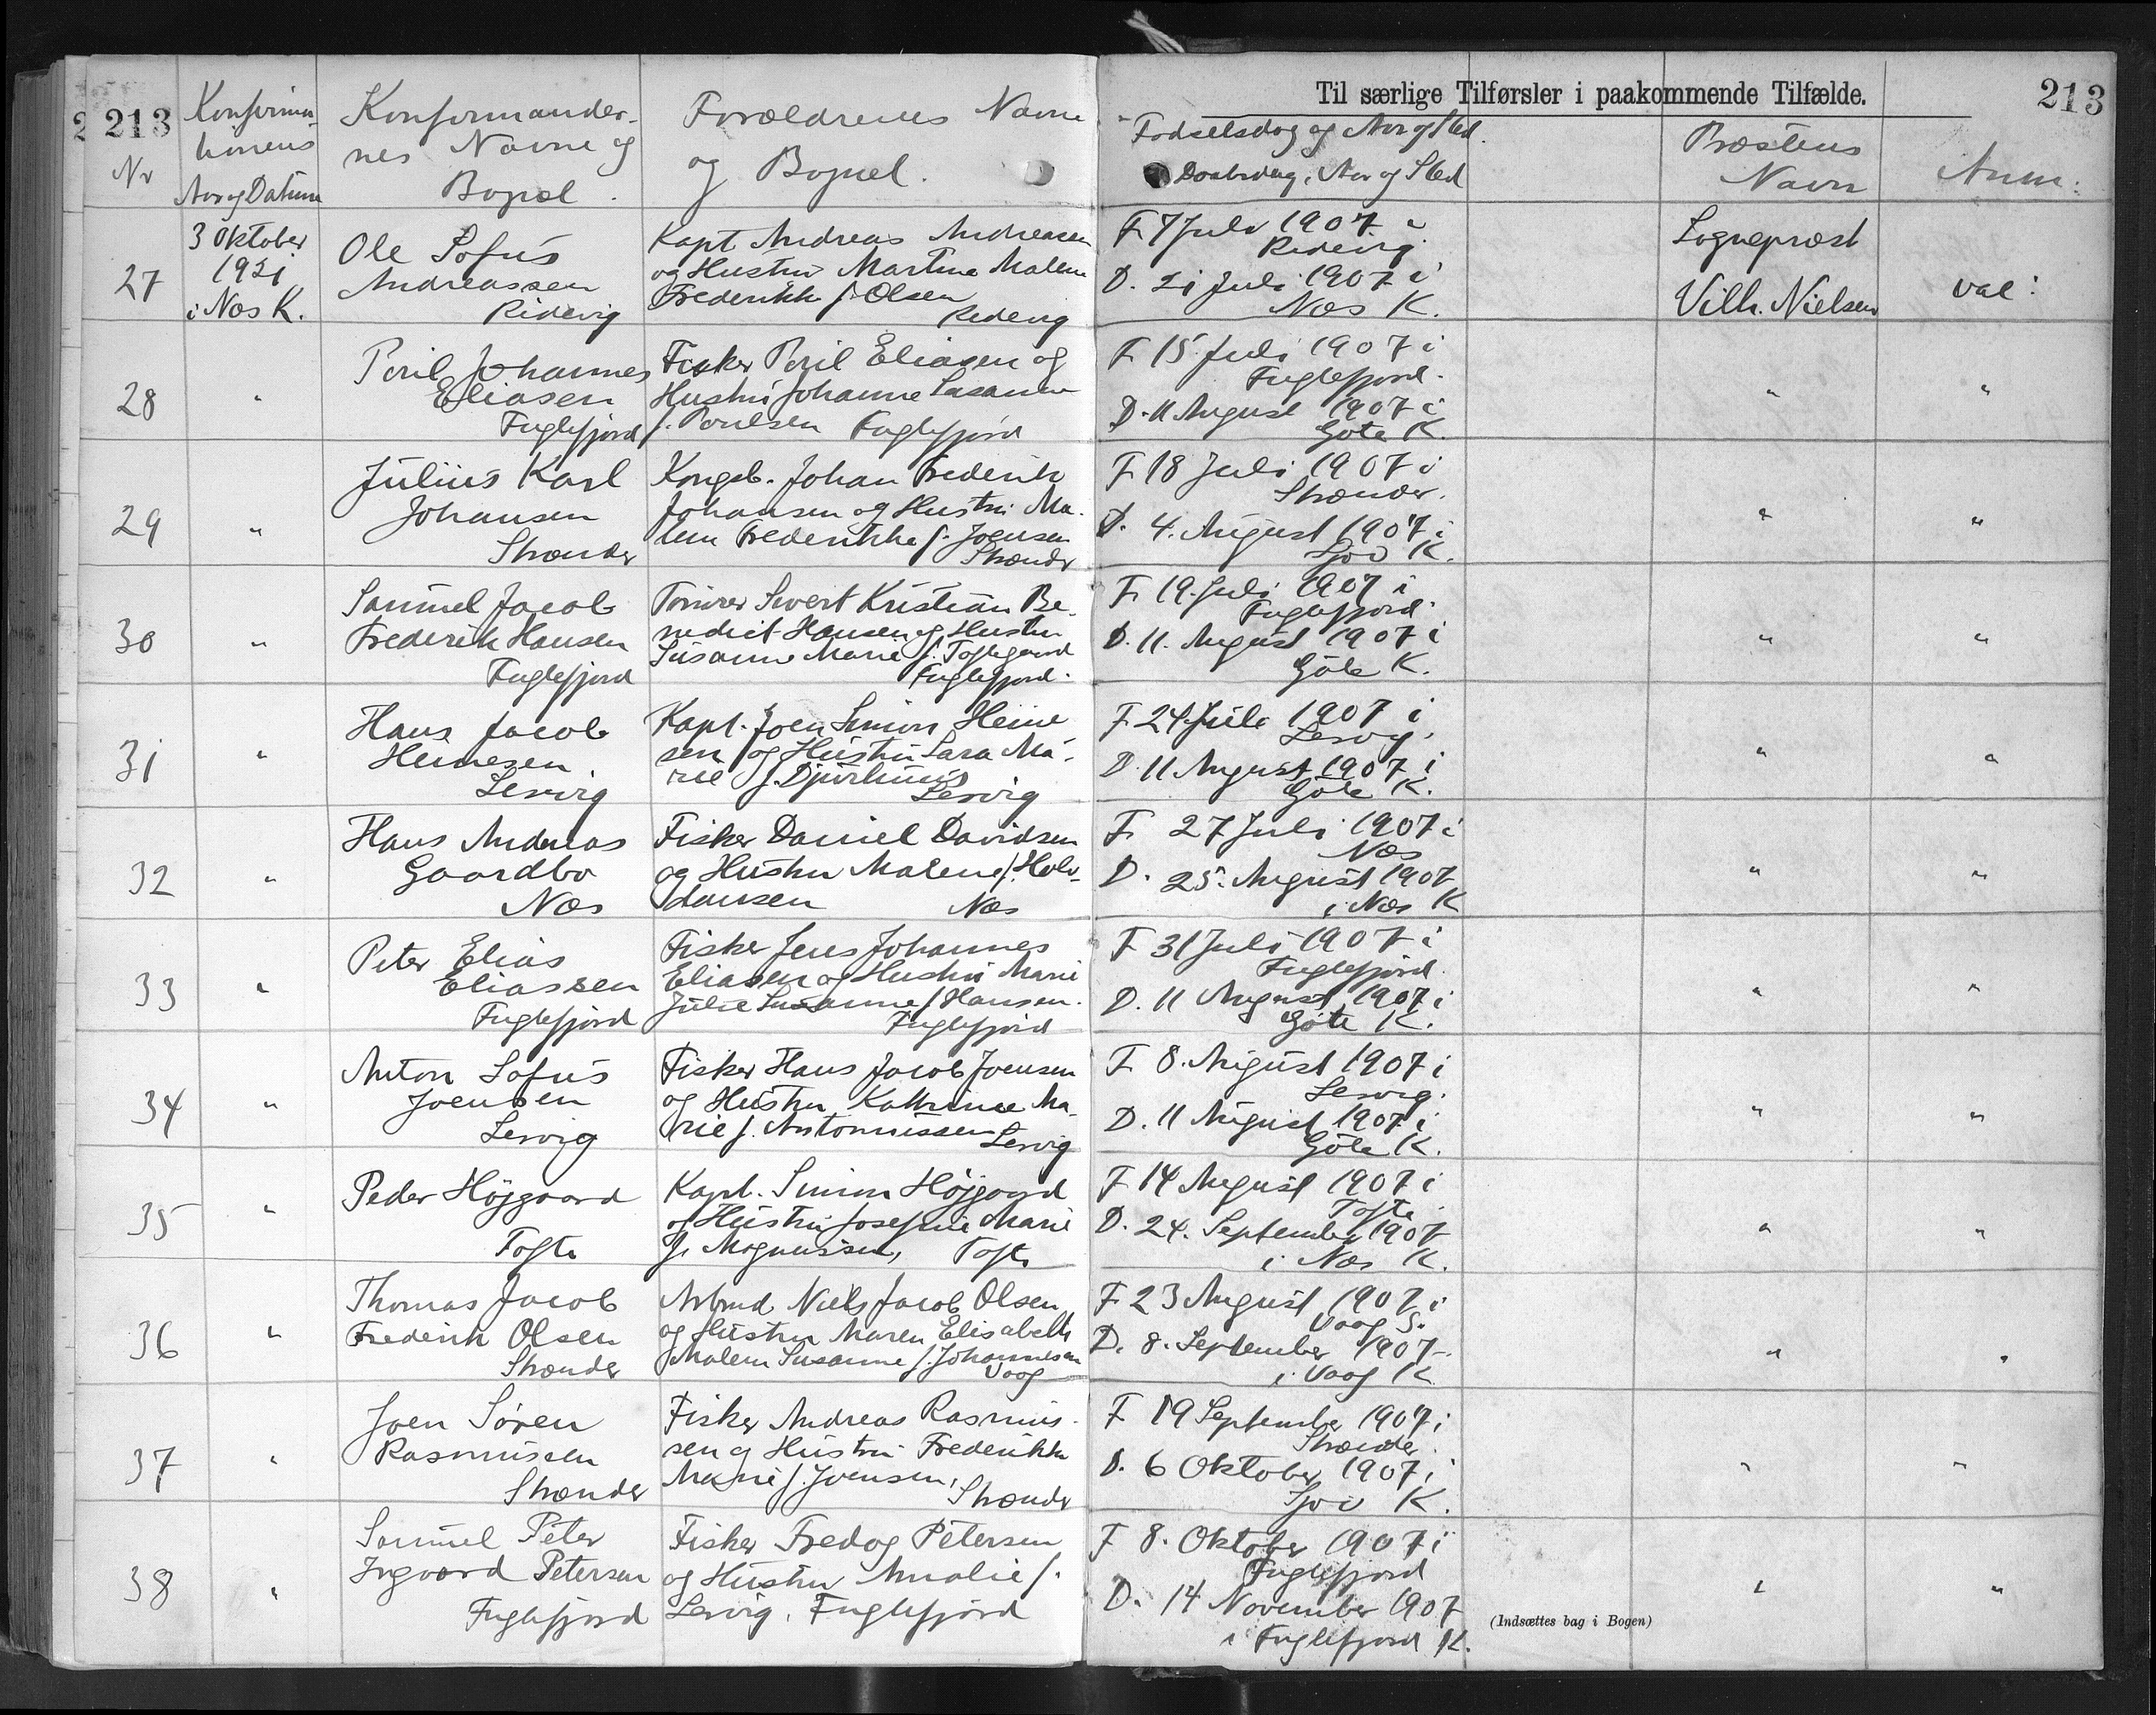 213
Til særlige Tilførsler i paakommende Tilfælde.
213
Nr
Konfirma-
tionens
Aar og Datum
Konfirmander-
nes Navne og
Bopæl.
Forældrenes Navne
og Bopæl.
Fødselsdag og Aar og Sted.
Daabsdag, Aar og Sted
Præstens
Navn
Anm:
27
3 Oktober
1921
i Næs K.
Ole Sofus
Andreassen
Ridevig
Kapt Andreas Andreasen
og Hustru Martine Malene
Frederikke f. Olsen
Ridevig
F 7 Juli 1907 i
Ridevig
D. 21 Juli 1907 i
Næs K.
Sognepræst
Vilh. Nielsen
vac:
28
"
Poril Johannes
Eliasen
Fuglefjord
Fisker Poril Eliasen og
Hustru Johanne Susanne
f. Poulsen Fuglefjord
F. 15 Juli 1907 i
Fuglefjord.
D. 11 August 1907 i
Gøte K.
"
"
29
"
Julius Karl
Johansen
Strænder
Kongsb. Johan Frederik
Johansen og Hustru Ma-
lene Frederikke f. Joensen
Strænder
F 18 Juli 1907 i
Strænder.
D. 4. August 1907 i
Sjov K.
"
"
30
"
Samuel Jacob
Frederik Hansen
Fuglefjord
Tømrer Sivert Kristian Be-
nedict Hansen og Hustru
Susanne Marie f. Toftegaard
Fuglefjord.
F. 19. Juli 1907 i
Fuglefjord.
D. 11. August 1907 i
Gøte K.
"
"
31
"
Hans Jacob
Heinesen
Lervig
Kapt. Joen Simon Heine
sen og Hustru Sara Ma-
rie f. Djurhuus
Lervig
F. 24. Juli 1907 i
Lervig.
D. 11 August 1907 i
Gøte K.
"
"
32
"
Hans Andreas
Gaardbo
Næs
Fisker Daniel Davidsen
og Hustru Malene f. Halv-
dansen Næs
F. 27 Juli 1907 i
Næs
D. 25. August 1907
i Næs K
"
"
33
"
Peter Elias
Eliassen
Fuglefjord
Fisker Jens Johannes
Eliasen og Hustru Marie
Julie Susanne f. Hansen.
Fuglefjord
F 31 Juli 1907 i
Fuglefjord.
D. 11 August 1907 i
Gøte K.
"
"
34
"
Anton Sofus
Joensen
Lervig
Fisker Hans Jacob Joensen
og Hustru Kathrine Ma-
rie f. Antoniussen
Lervig
F. 8. August 1907 i
Lervig.
D. 11 August 1907 i
Gøte K.
"
"
35
"
Peder Højgaard
Tofte
Kapt. Simon Højgaard
og Hustru Josefine Marie
f. Magnussen, Tofte
F 14 August 1907 i
Tofte
D. 24. September 1907
i Næs K.
"
"
36
"
Thomas Jacob
Frederik Olsen
Strænder
Arbmd Niels Jacob Olsen
og Hustru Maren Elisabeth
Malene Susanne f. Johannesen
Vaag
F 23 August 1907 i
Vaag S.
D. 8. September 1907
i Vaag K
"
"
37
"
Joen Søren
Rasmussen
Strænder
Fisker Andreas Rasmus-
sen og Hustru Frederikke
Marie f. Joensen,
Strænder
F 19 September 1907 i
Strænder.
D. 6 Oktober 1907 i
Sjov K.
"
"
38
"
Samuel Peter
Ingvard Petersen
Fuglefjord
Fisker Fredog Petersen
og Hustru Amalie f.
Lervig, Fuglefjord
F 8. Oktober 1907 i
Fuglefjord
D. 14 November 1907
i Fuglefjord K.
"
"
(Indsættes bag i Bogen)